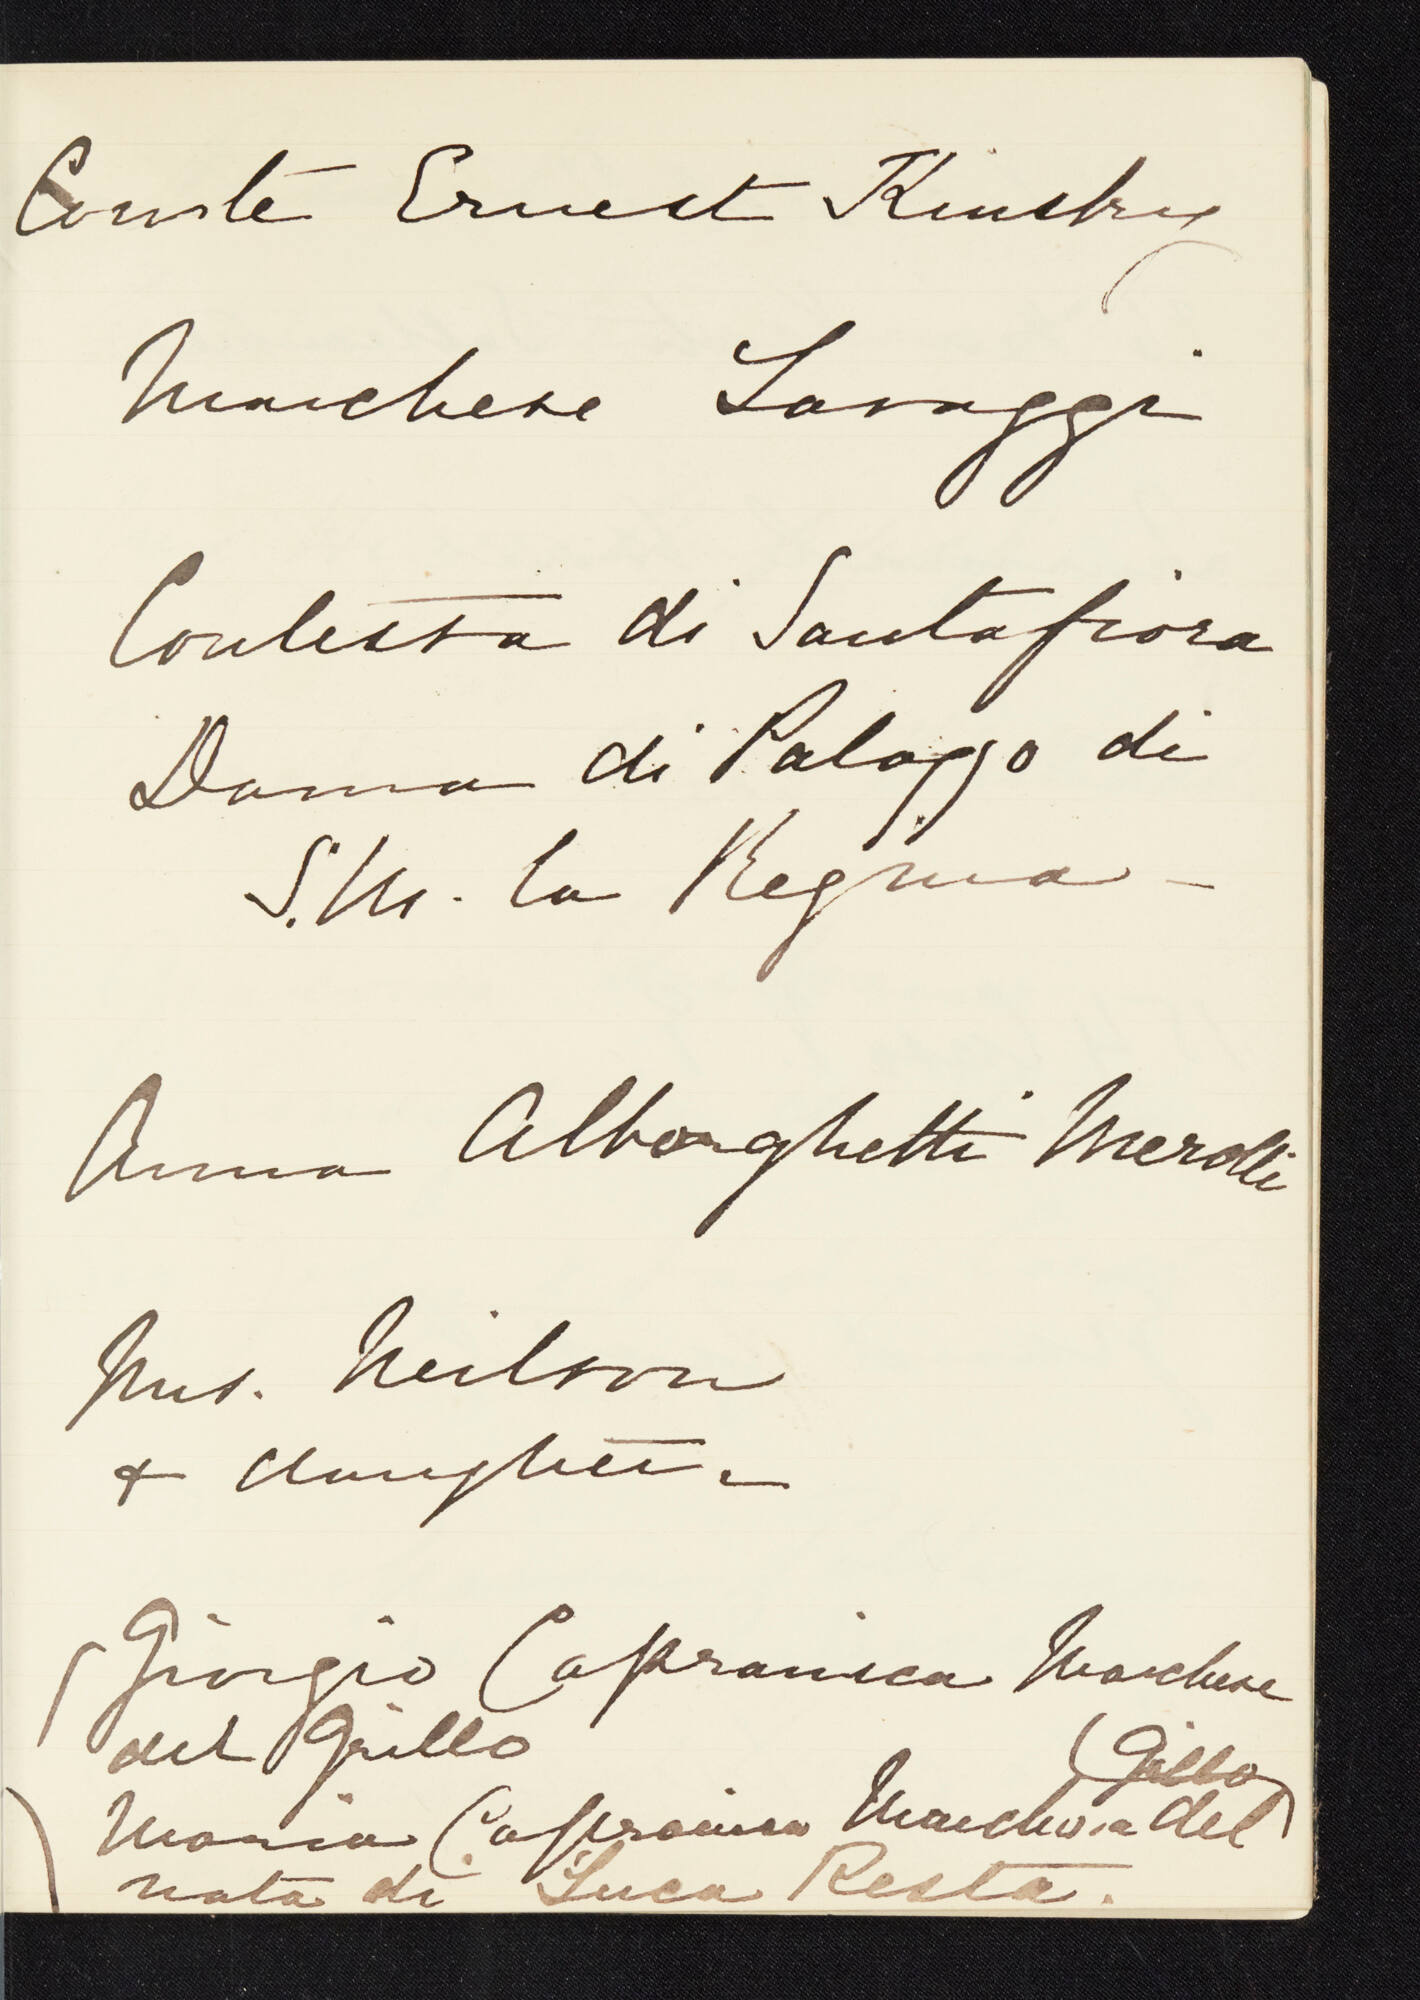 Comte Ernest Kinsky
Marchese Lavaggi
Contessa di Santafiora
Dama di Palazzo di
S.M. la Regina -
Anna Alborghetti Merolli
Mrs. Neilson
& daughter
Giorgio Capranica Marchese
del Grillo
(Grillo)
Maria Capranica Marchesa del
nata di Luca Resta.